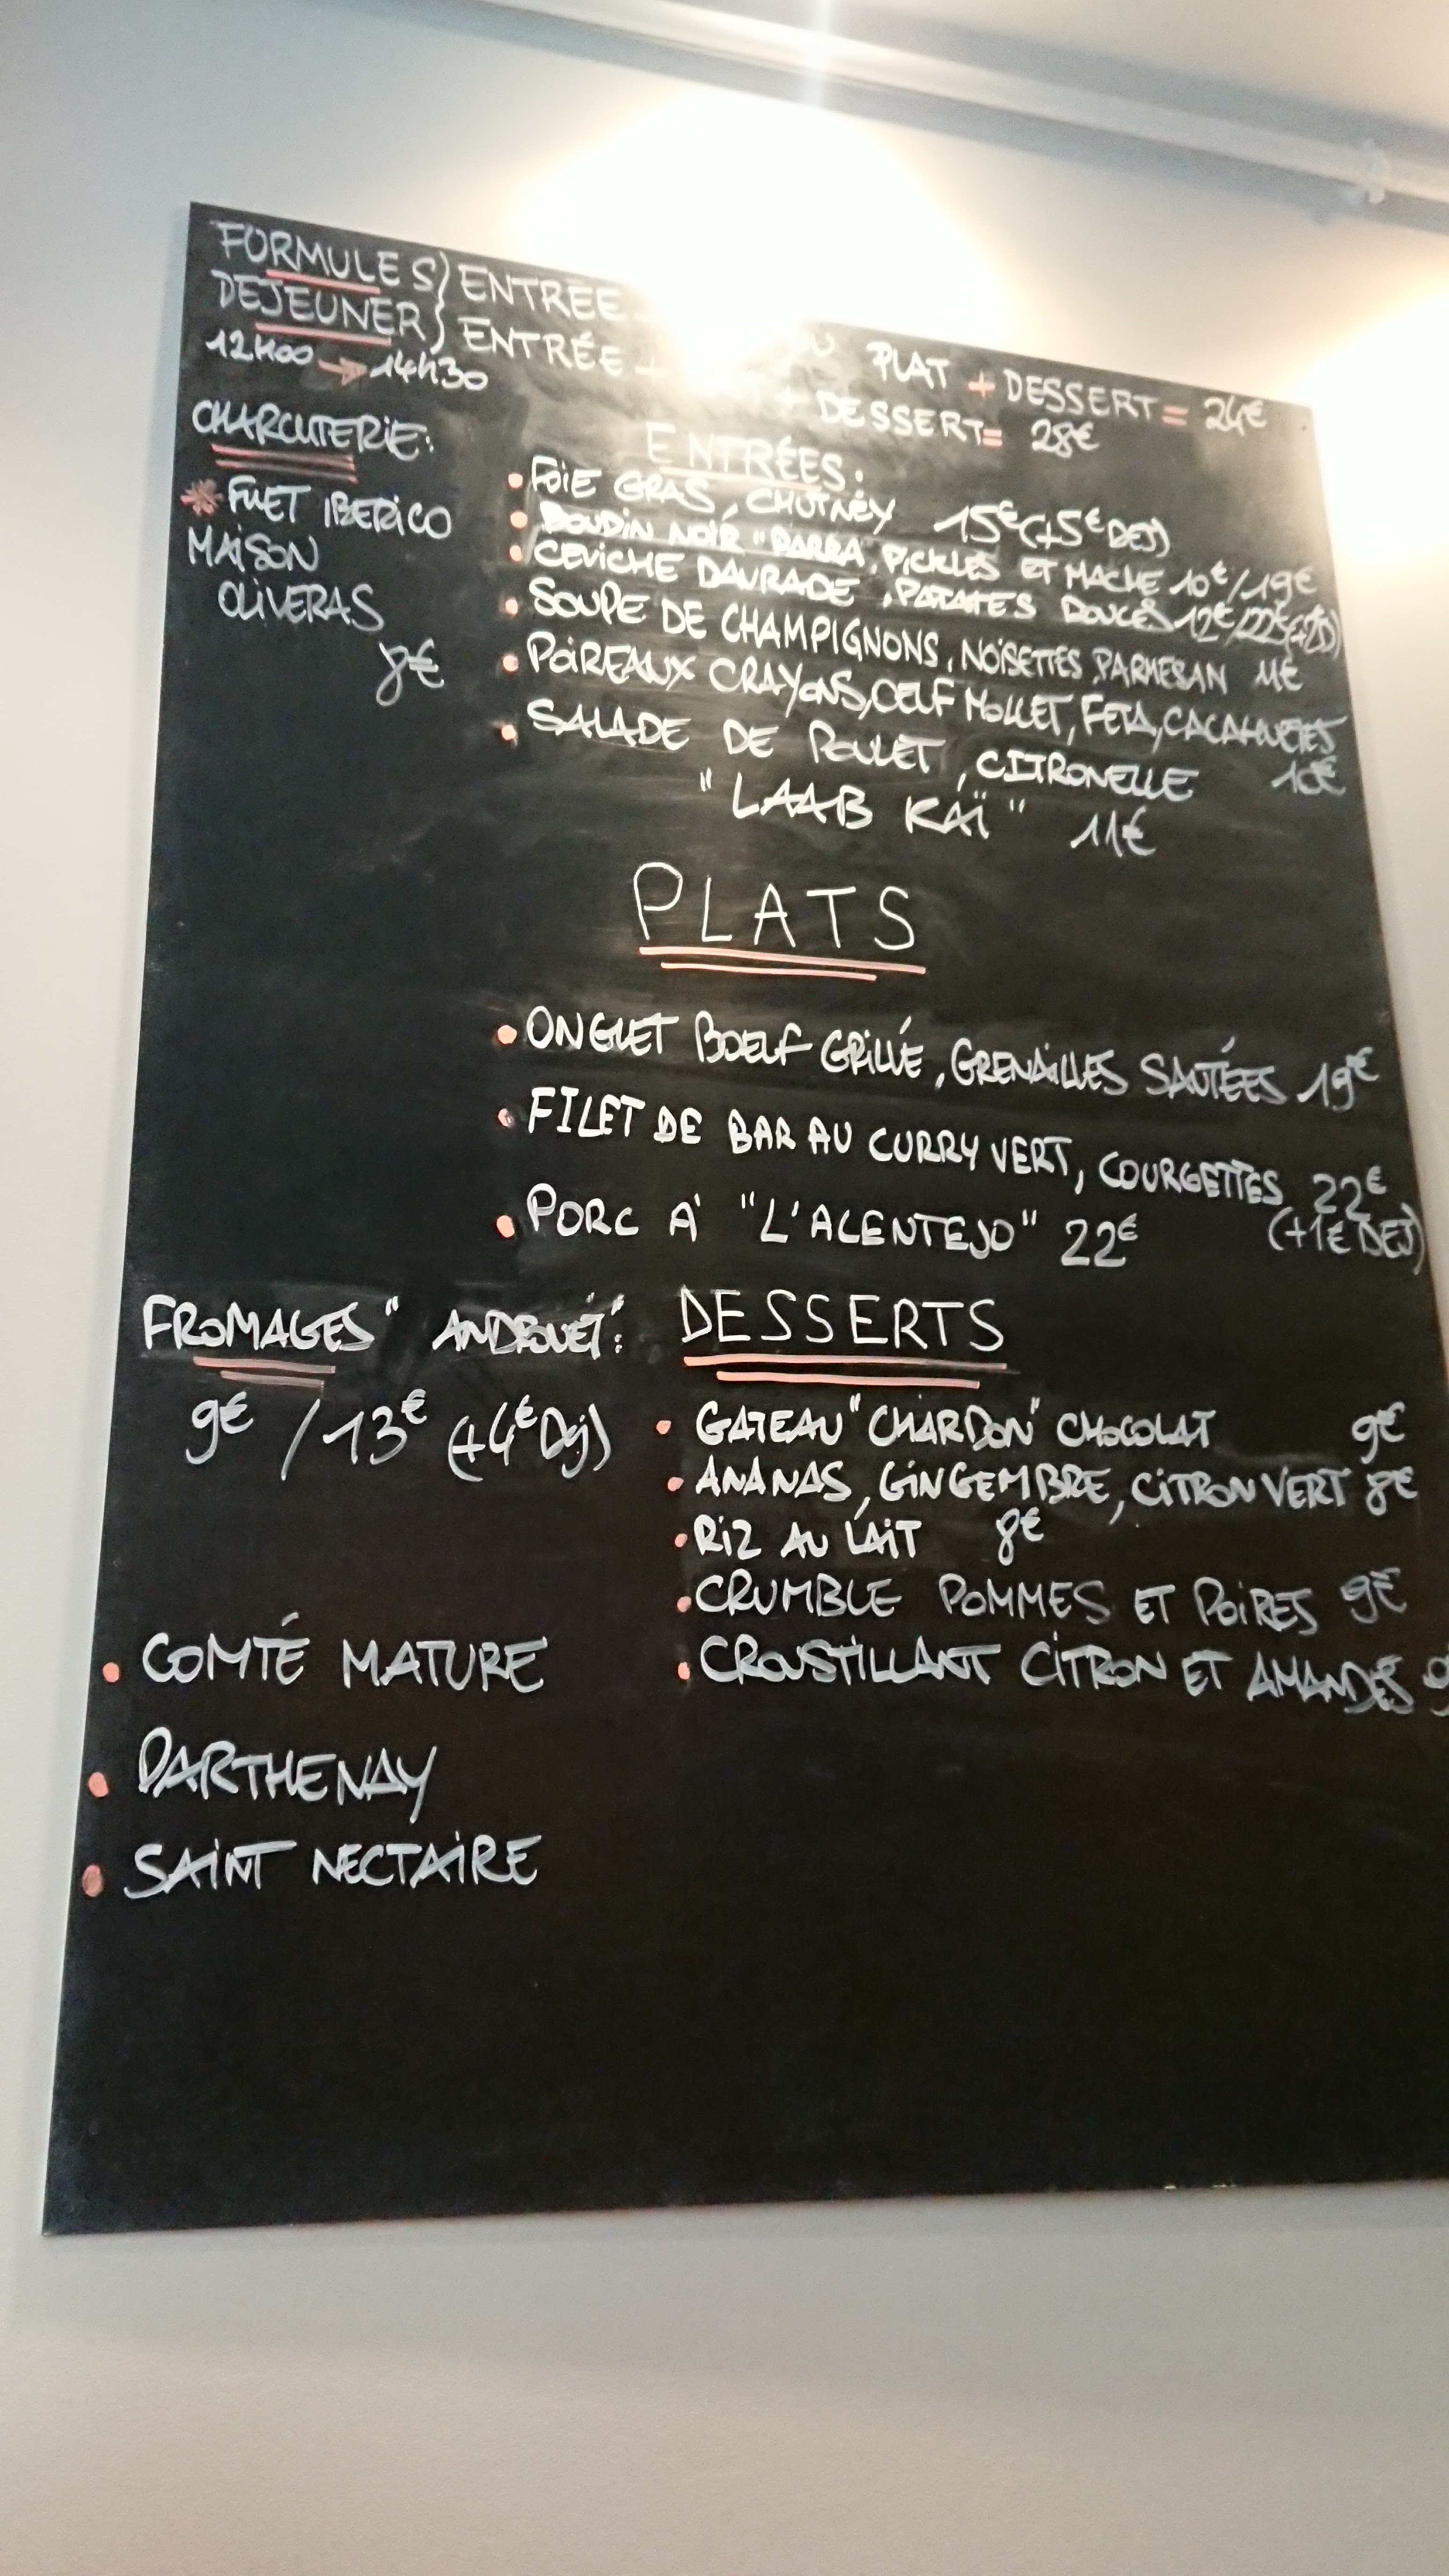 FORMULES
DEJEUNER
12H00 → 14H30
ENTRÉE PLAT + DESSERT = 24€
ENTRÉE + + DESSERT = 28€
CHARCUTERIE:
* FUET IBERICO
MAISON
OLIVERAS
8€
ENTRÉES:
• FOIE GRAS, CHUTNEY 15€ (+5€ DEJ)
• BOUDIN NOIR "PARRA, PICKLES ET MACHE 10€/19€
• CEVICHE DAURADE, PATATES DOUCES 12€/22€
• SOUPE DE CHAMPIGNONS, NOISETTES, PARMESAN 11€
• POIREAUX CRAYONS, OEUF MOLLET, FETA, CACAHUETES
10€
• SALADE DE POULET, CITRONELLE
"LAAB KAÏ" 11€
PLATS
• ONGLET BOEUF GRILLÉ, GRENAILLES SAUTÉES 19€
• FILET DE BAR AU CURRY VERT, COURGETTES 22€
(+1€ DEJ)
• PORC A' "L'ALENTEJO" 22€
FROMAGES "ANDROUET":
9€ / 13€ (+4€ Dej)
• COMTÉ MATURE
• PARTHENAY
• SAINT NECTAIRE
DESSERTS
• GATEAU "CHARDON" CHOCOLAT 9€
• ANANAS, GINGEMBRE, CITRON VERT 8€
• RIZ AU LAIT 8€
• CRUMBLE POMMES ET POIRES 9€
• CROUSTILLANT CITRON ET AMANDES 9